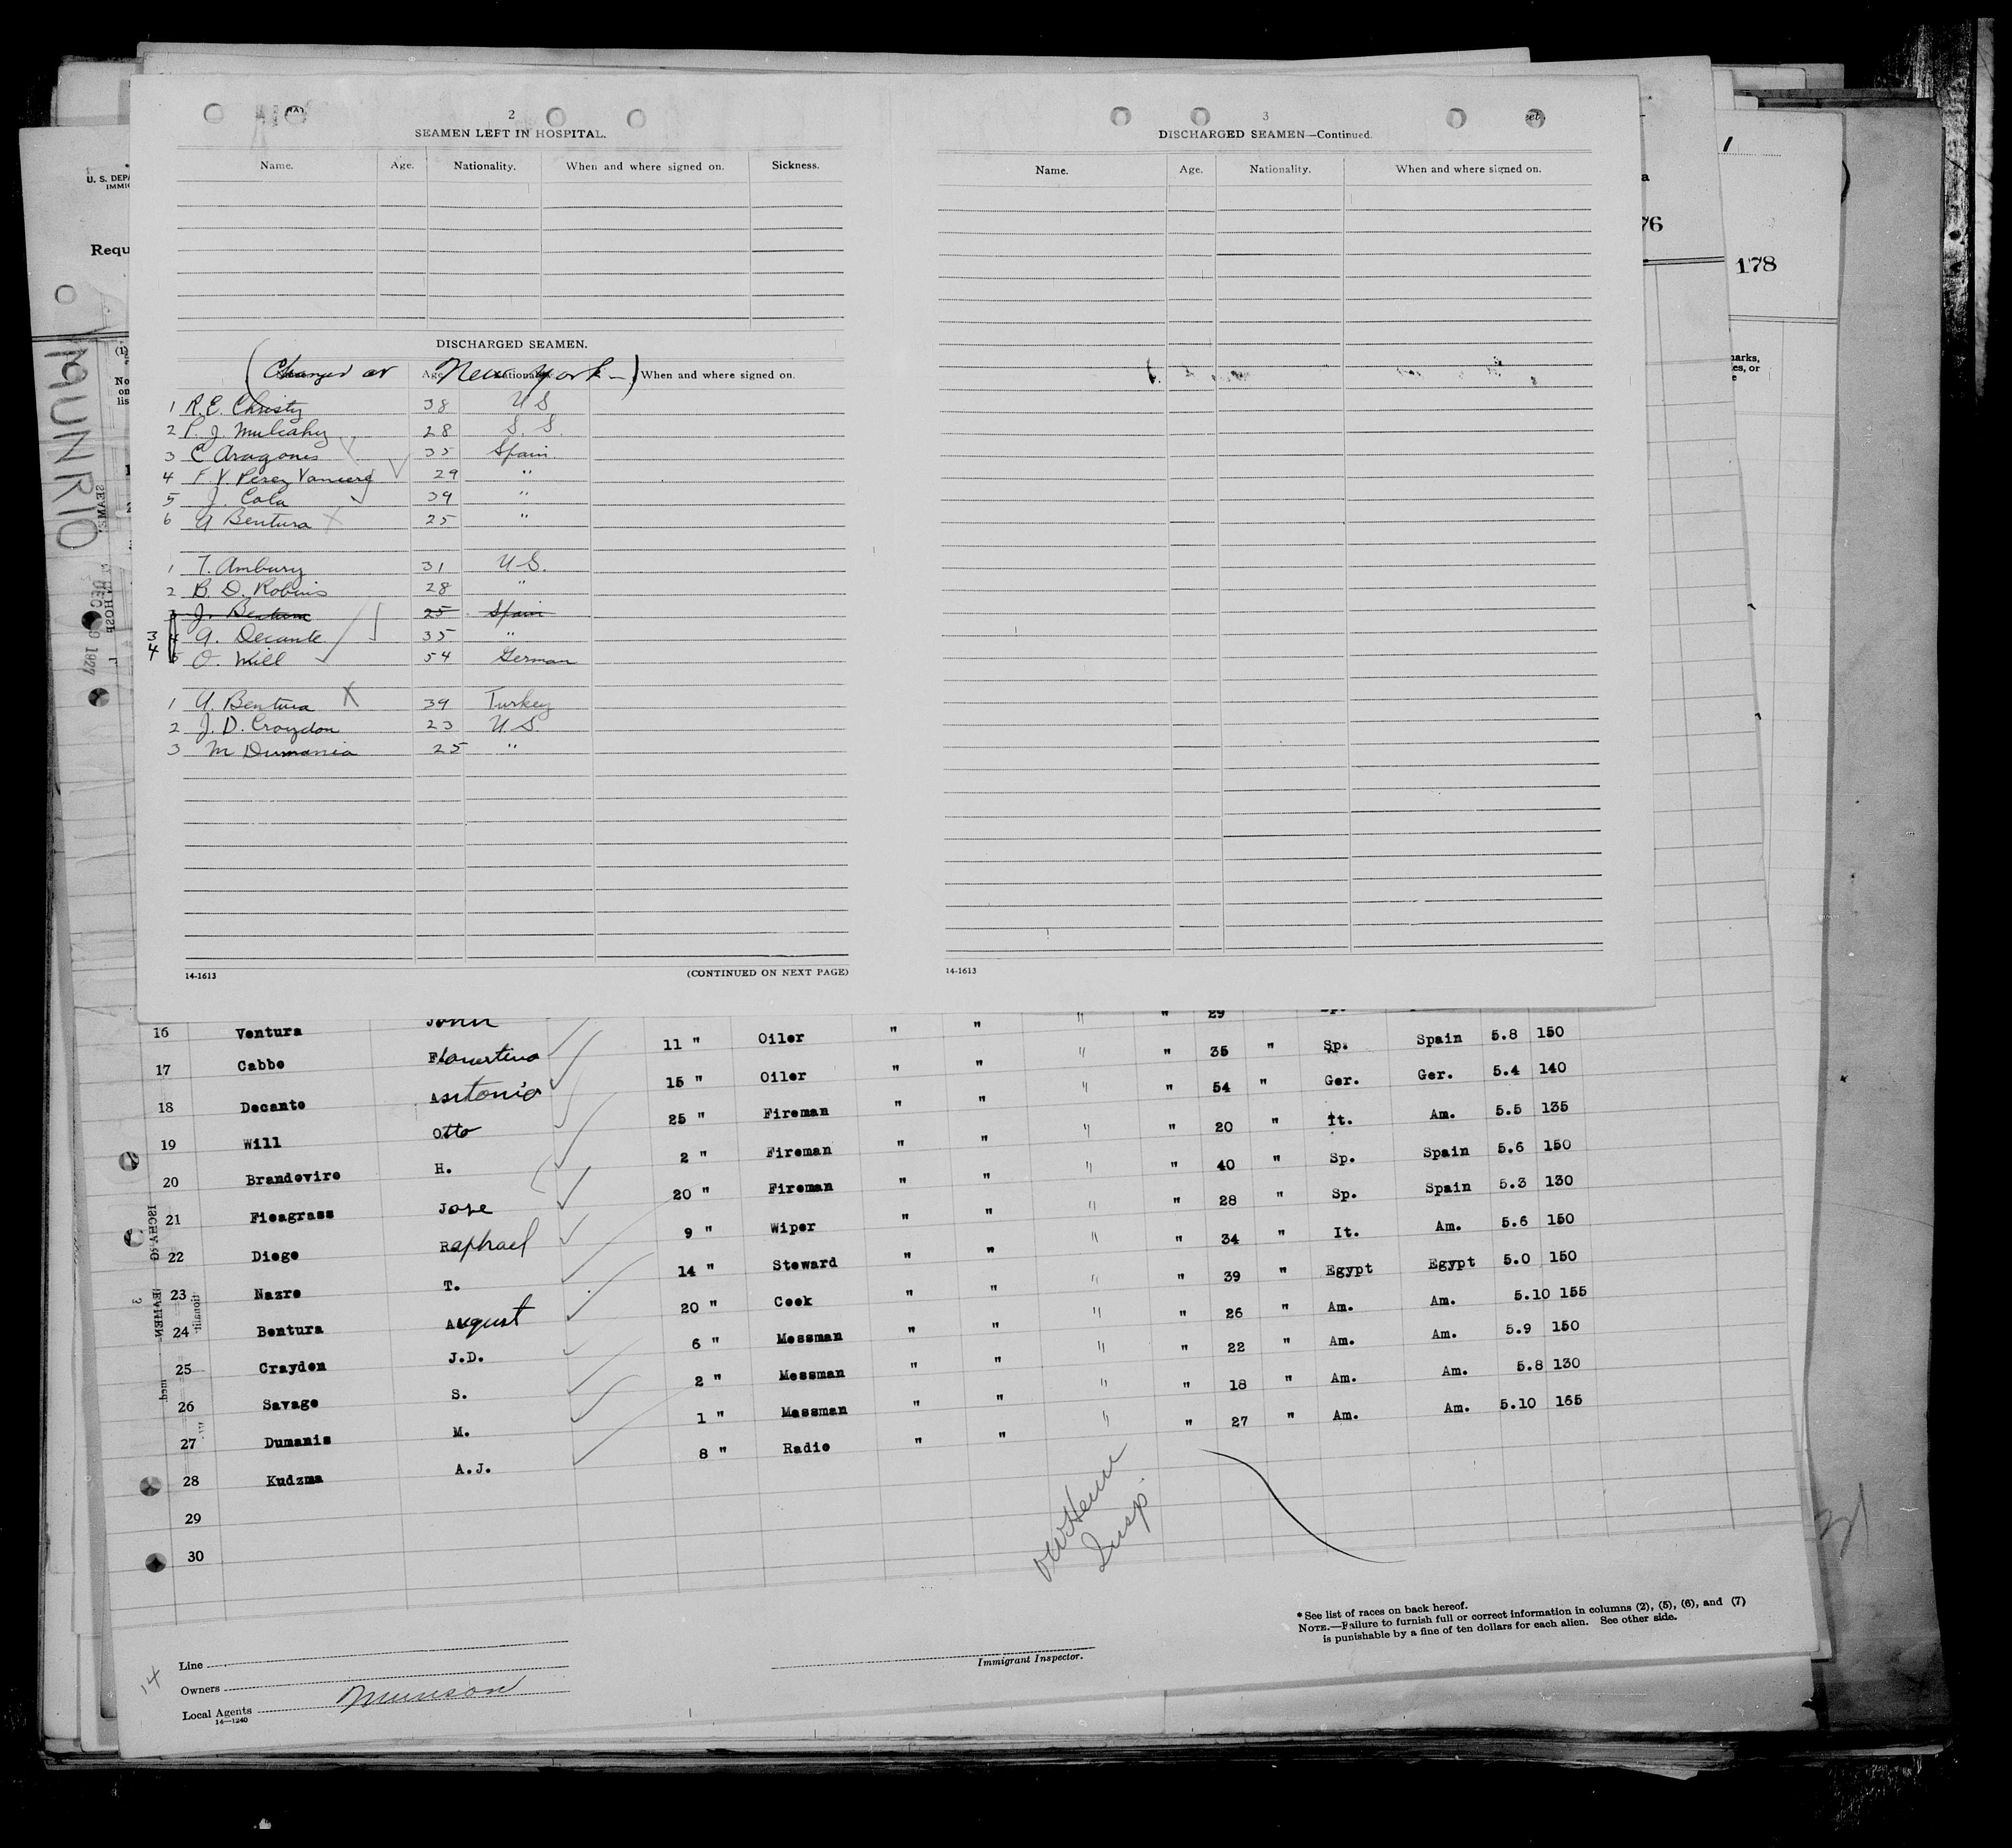 2
SEAMEN LEFT IN HOSPITAL.
Name. Age. Nationality. When and where signed on. Sickness.
DISCHARGED SEAMEN.
(Changed at New York -)
Age Nationality When and where signed on.
1 R.E. Christy 38 U S
2 P. J. Mulcahy 28 S. S.
3 C Aragones 35 Spain
4 F. V. Perez 29 "
5 J. Cala 39 "
6 A Bentura 25 "
1 T. Ambury 31 U.S.
2 B. D. Robins 28 "
3 J. Bentura 25 Spain
3 4 A. Decante 35 "
4 5 O. Will 54 German
1 A. Bentura X 39 Turkey
2 J. D. Croydon 23 U.S.
3 M Dumania 25 "
14-1613 (CONTINUED ON NEXT PAGE)
3
DISCHARGED SEAMEN—Continued.
Name. Age. Nationality. When and where signed on.
14-1613
U. S. DEPA
IMMIG
Requ
(1)
No
on
lis
MUNRIO
DEC 9 1927
1
a
76
178
marks,
es, or
e
16 Ventura John 11 " Oiler " " " " 29
17 Cabbe Florentino 15 " Oiler " " " " 35 " Sp. Spain 5.8 150
18 Decante Antonio 25 " Fireman " " " " 54 " Ger. Ger. 5.4 140
19 Will Otto 2 " Fireman " " " " 20 " It. Am. 5.5 135
20 Brandevire H. 20 " Fireman " " " " 40 " Sp. Spain 5.6 150
21 Fieagrass Jose 9 " Wiper " " " " 28 " Sp. Spain 5.3 130
22 Diege Raphael 14 " Steward " " " " 34 " It. Am. 5.6 150
23 Nazre T. 20 " Cook " " " " 39 " Egypt Egypt 5.0 150
24 Bentura August 6 " Messman " " " " 26 " Am. Am. 5.10 155
25 Crayden J.D. 2 " Messman " " " " 22 " Am. Am. 5.9 150
26 Savage S. 1 " Messman " " " " 18 " Am. Am. 5.8 130
27 Dumanis M. 8 " Radio " " " " 27 " Am. Am. 5.10 165
28 Kudzma A.J.
29
30
Insp.
* See list of races on back hereof.
NOTE.—Failure to furnish full or correct information in columns (2), (5), (6), and (7)
is punishable by a fine of ten dollars for each alien. See other side.
Line
Owners
Local Agents Munson
14—1240
14
Immigrant Inspector.
31